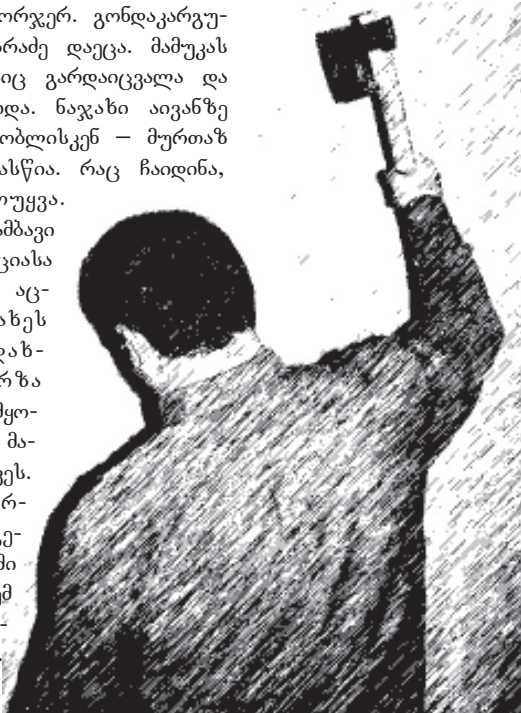 ორჯერ. გონდაკარგუ-
არაძე დაეცა. მამუკას
იც გარდაიცვალა და
და. ნაჯახი აივანზე
ობლისკენ – მურთაზ
ასწია. რაც ჩაიდინა,
უყვა.
ამბავი
ციასა
აც-
ახეს
დახ-
რზა
მყო-
მა-
ვეს.
რ-
ე-
ში
ემ
-